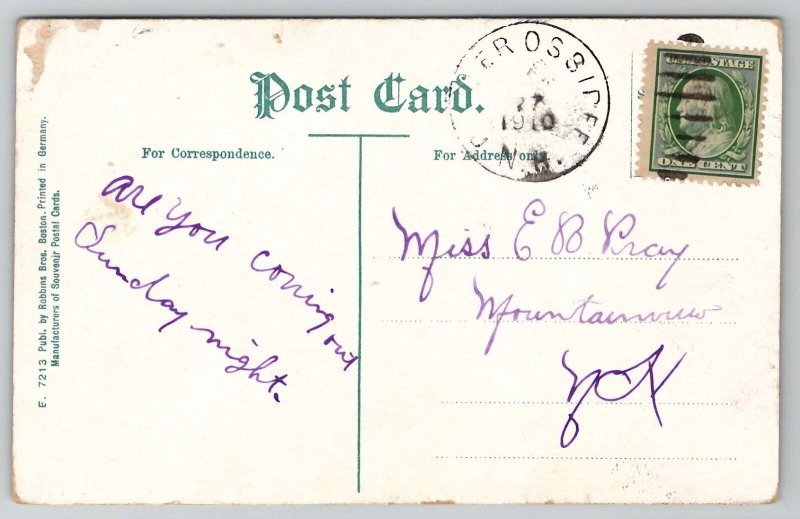 Post Card.
For Correspondence.
For Address only.
are you coming out
Sunday night.
Miss E B Pray
Mountainview
N H
EROSSIPEE
27
1910
N.H.
U.S. POSTAGE
ONE CENT
E. 7213 Publ. by Robbins Bros. Boston. Printed in Germany.
Manufacturers of Souvenir Postal Cards.